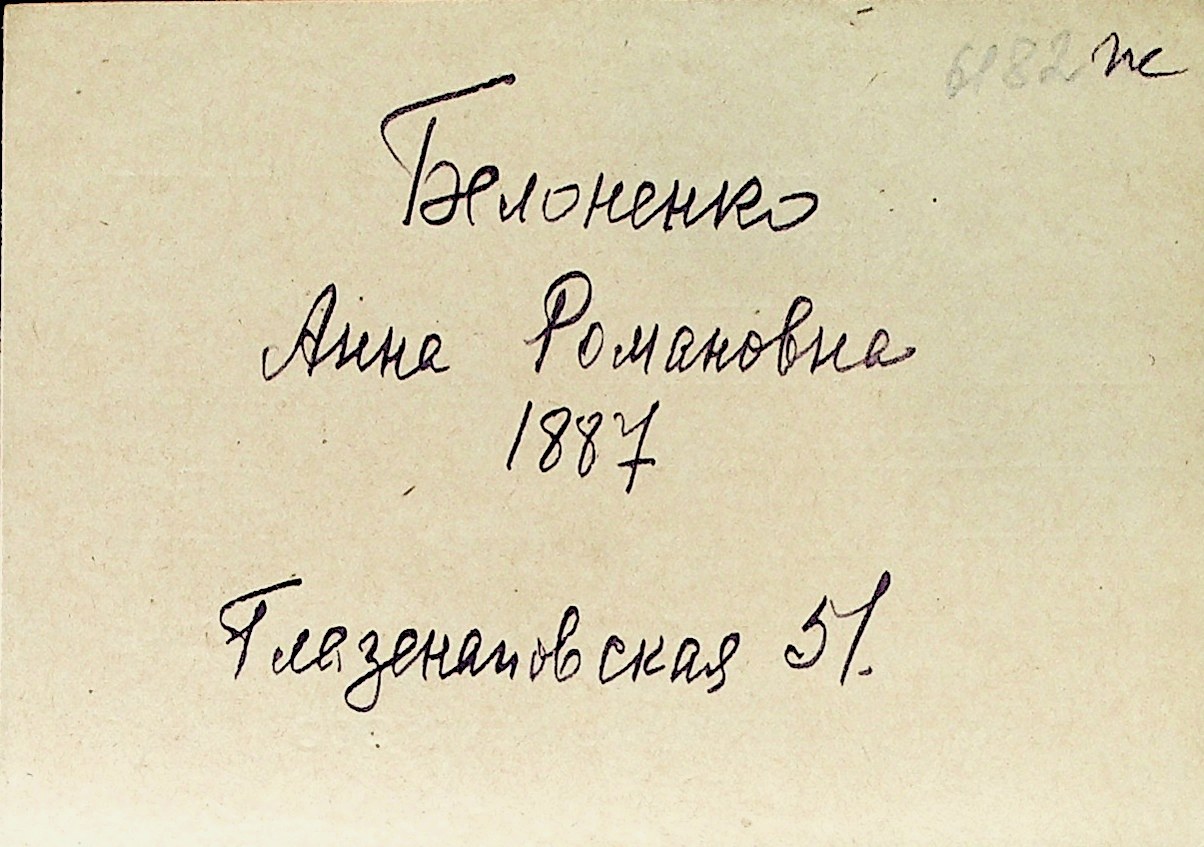 6182 ж
Белоненко
Анна Романовна
1887
Глазенаповская 51.